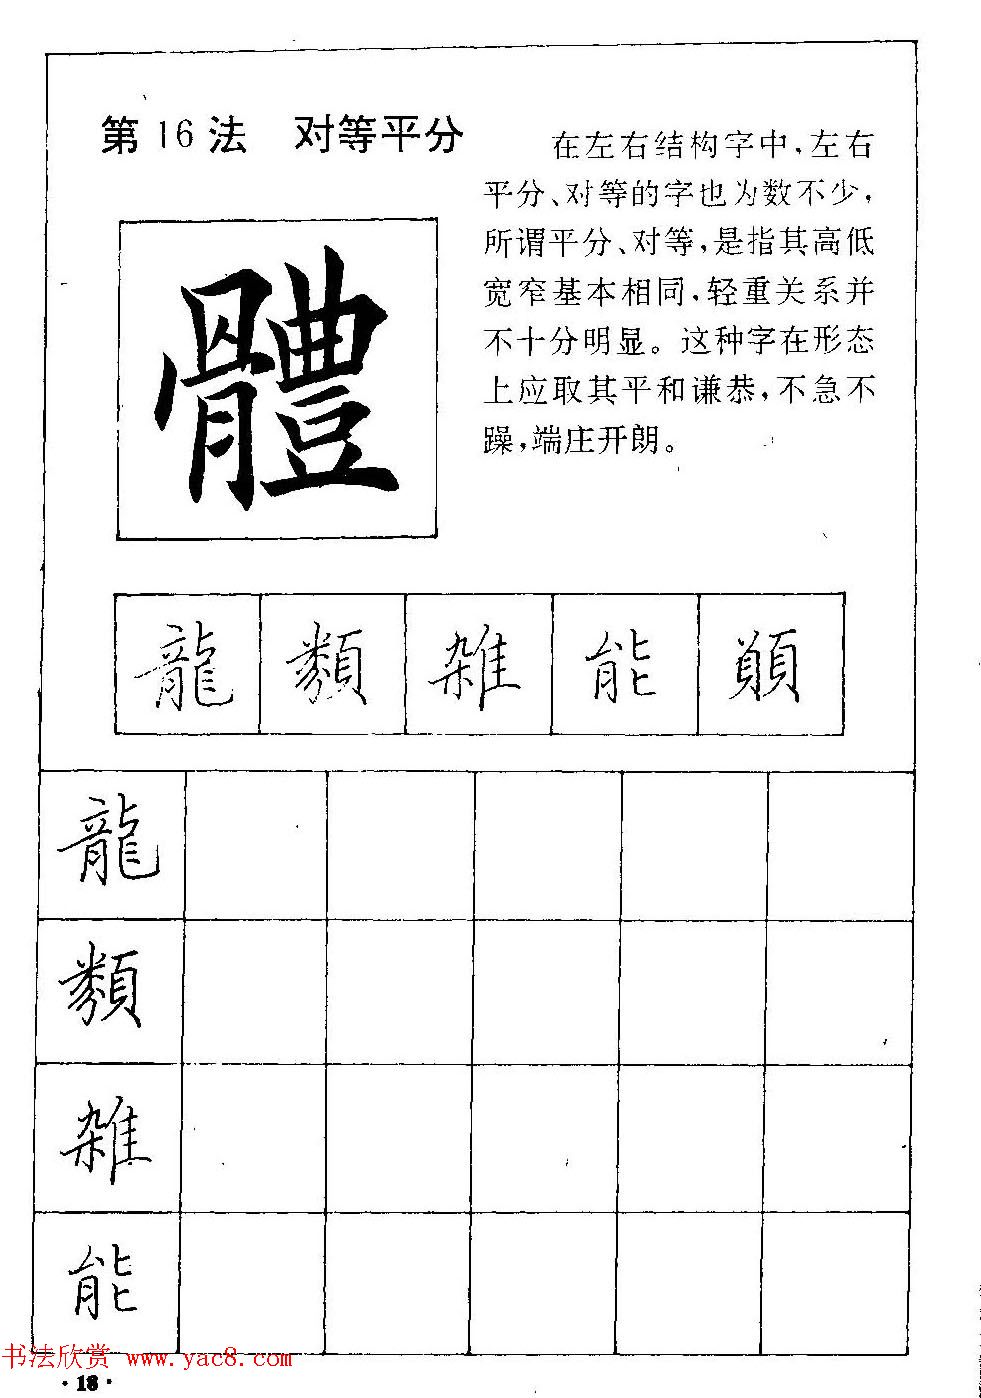 第16法 对等平分
在左右结构字中,左右
平分、对等的字也为数不少,
所谓平分、对等,是指其高低
宽窄基本相同,轻重关系并
不十分明显。这种字在形态
上应取其平和谦恭,不急不
躁,端庄开朗。
體
龍 類 雑 能 顛
龍
類
雑
能
书法欣赏 www.yac8.com
·18·